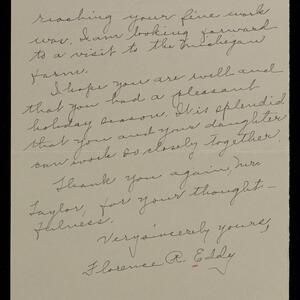 reaching your fine work
was. I am looking forward
to a visit to the Michegan
farm.
I hope you are well and
that you had a pleasant
holiday season. It is splendid
that you and your daughter
can work so closely together.
Thank you again, Mrs
Taylor, for your thought-
fulness.
Very sincerely yours,
Florence R. Eddy